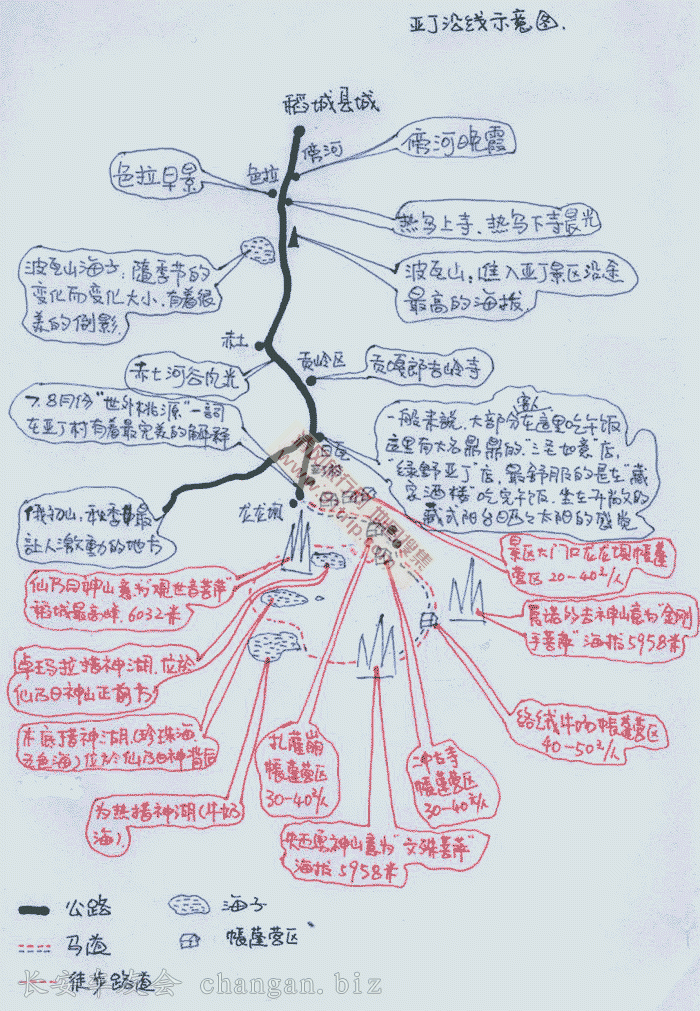 亚丁沿线示意图.
稻城县城
傍河
傍河晚霞
色拉早景
色拉
热乌上寺、热乌下寺晨光
波瓦山海子:随季节的
变化而变化大小.有着很
美的倒影.
波瓦山:进入亚丁景区沿途
最高的海拔.
赤土
贡岭区
赤土河谷风光
贡嘎郎吉岭寺
7、8月份"世外桃源"一词
在亚丁村有着最完美的解释
客人
一般来说,大部分在这里吃午饭
这里有大名鼎鼎的"三毛如意"店,
"绿野亚丁"店,最舒服的是在"藏
家酒楼"吃完午饭,坐在开阔的
藏式阳台晒太阳的感觉
俄初山:秋季最
让人激動的地方
龙龙坝
景区大门口龙龙坝帳蓬
营区20-40元/人
仙乃日神山意为"观世音菩萨"
稻城最高峰.6032米
夏诺多吉神山意为"金刚
手菩萨"海拔5958米
卓玛拉措神湖.位於
仙乃日神山正前方
络绒牛场帳蓬营区
40-50元/人
木底措神湖(珍珠海
五色海)位於仙乃日神背后
扎薩崩
帳蓬营区
30-40元/人
冲古寺
帳蓬营区
30-40元/人
为热措神湖(牛奶
海).
央迈勇神山意为"文殊菩萨"
海拔5958米
公路
海子
马道
帳蓬营区
徒步路道
changan.biz